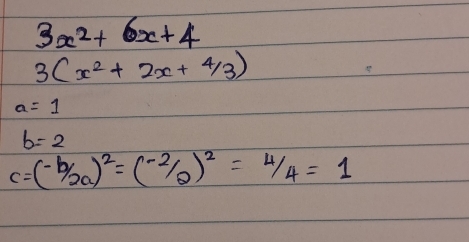 3x² + 6x + 4
3(x² + 2x + 4/3)
a = 1
b = 2
c = (-b/2a)² = (-2/2)² = 4/4 = 1